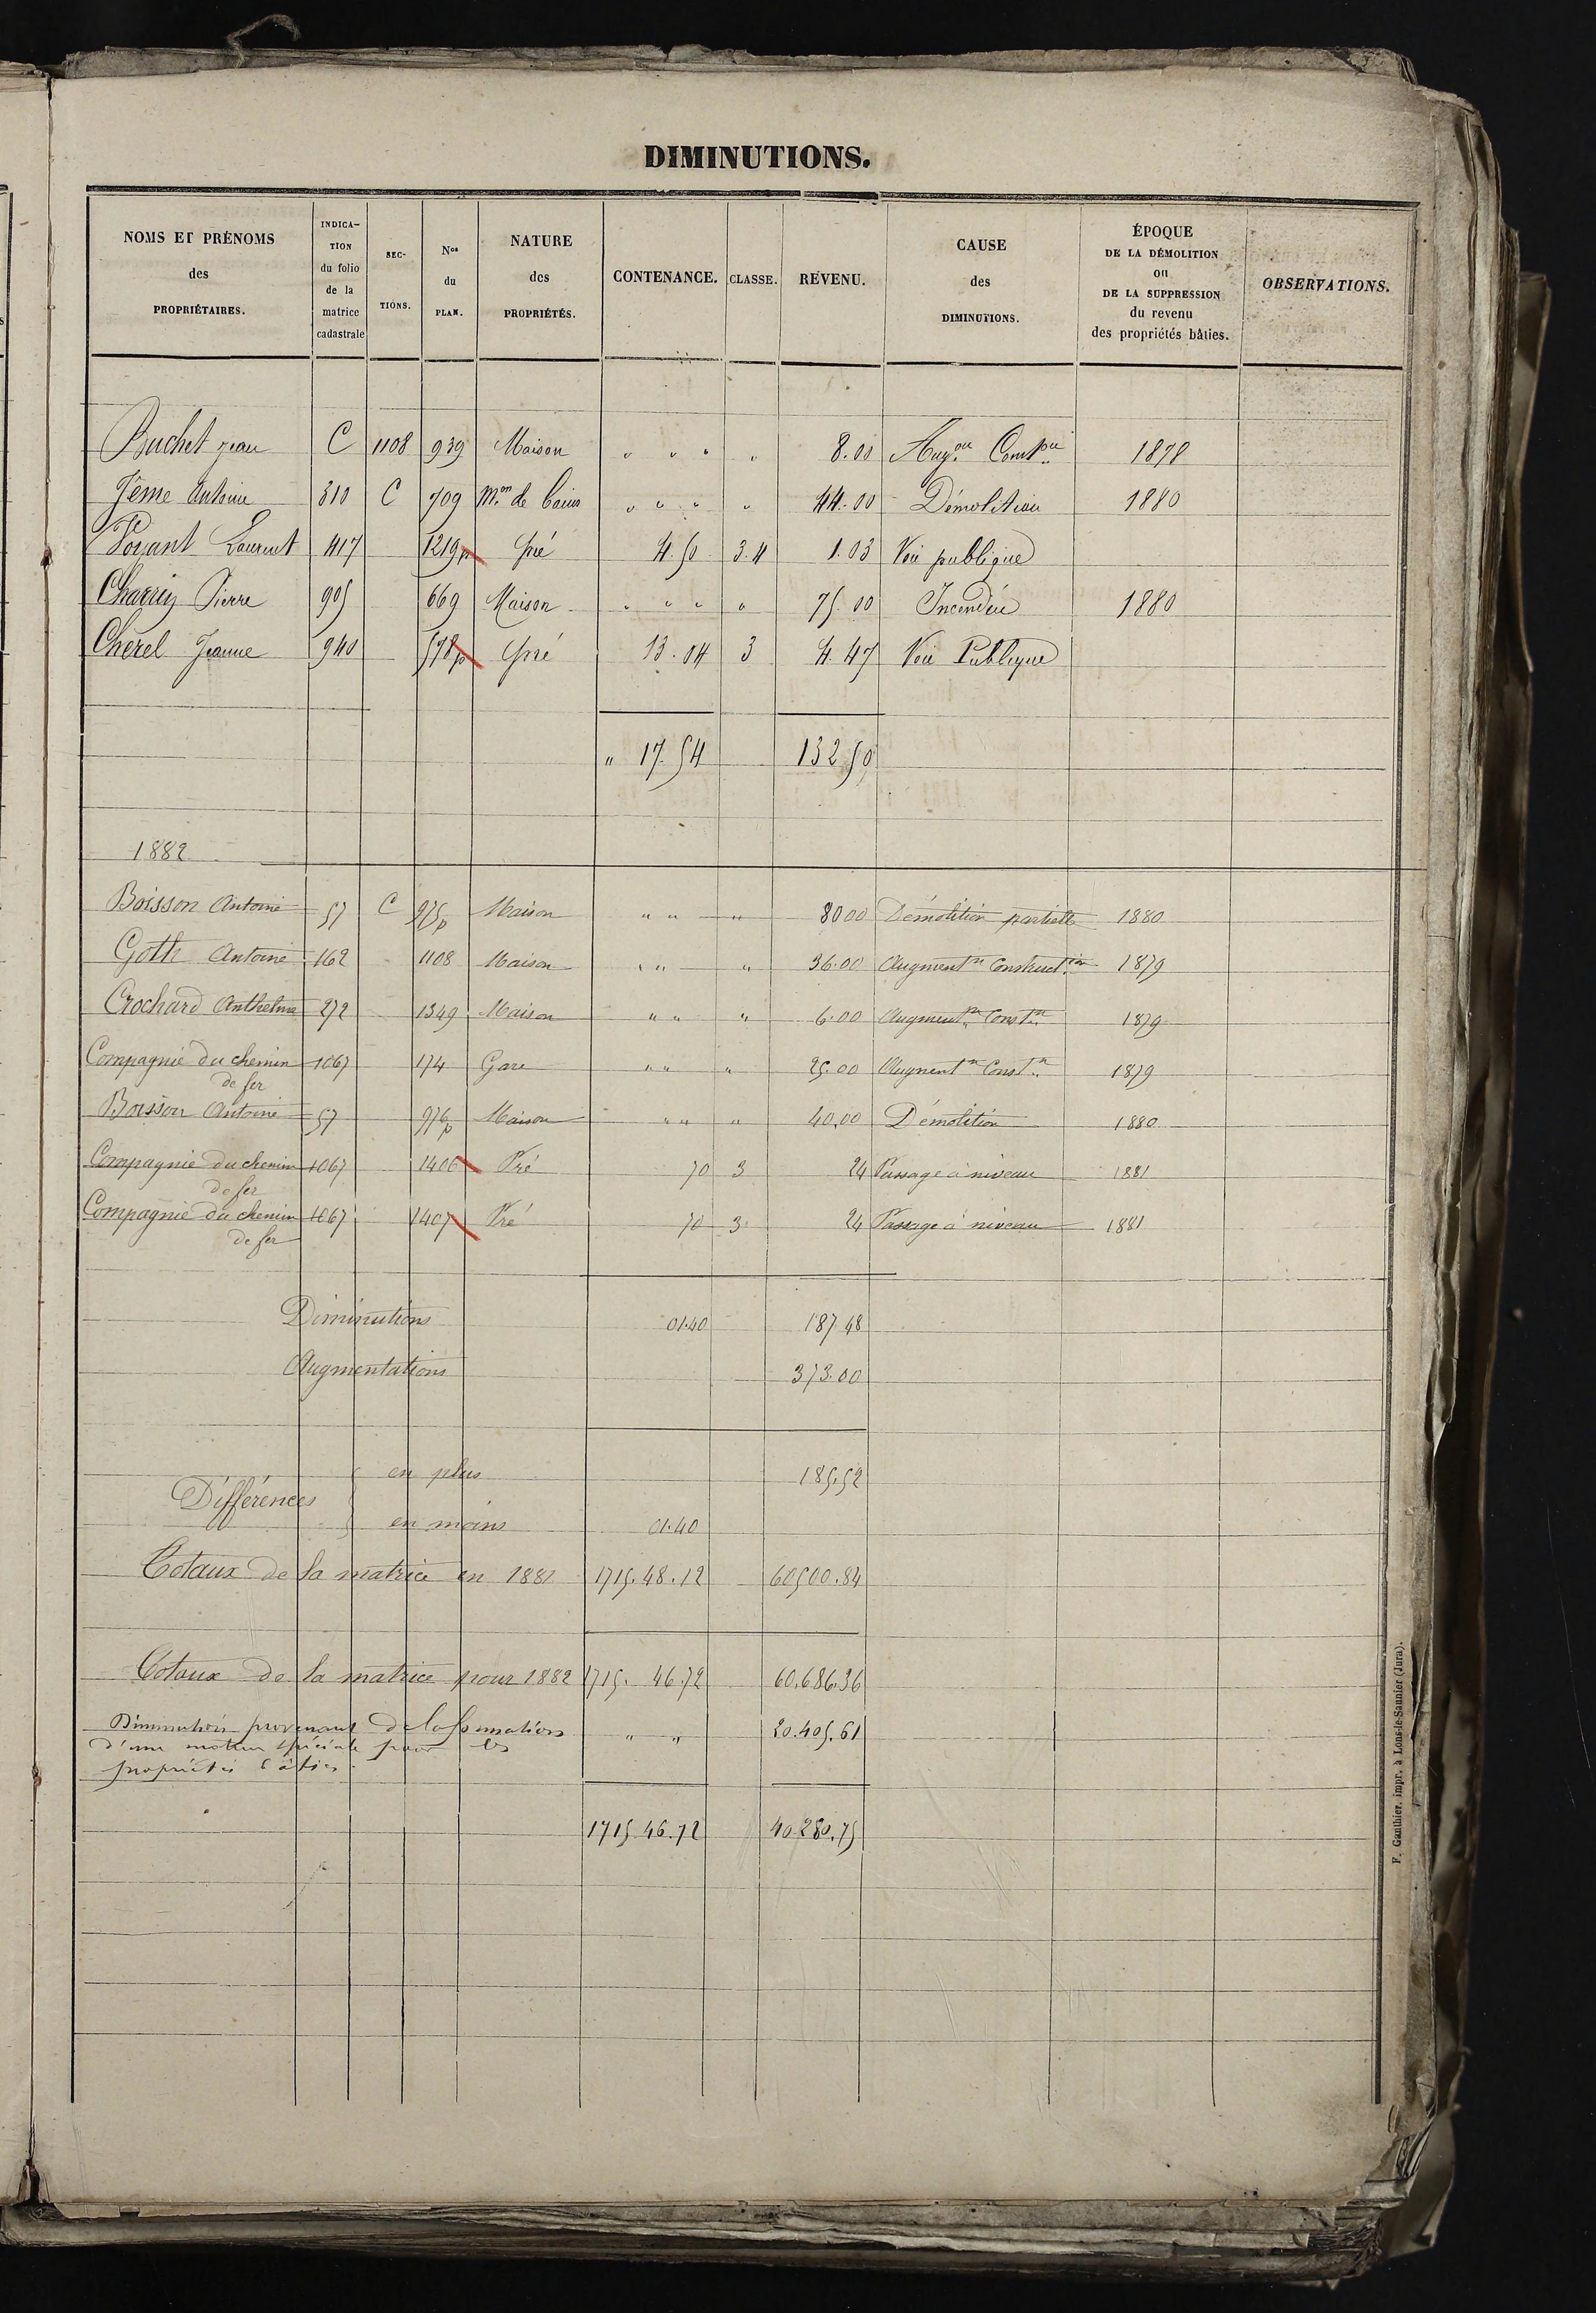 DIMINUTIONS.
NOMS ET PRÉNOMS des PROPRIÉTAIRES. | INDICATION du folio de la matrice cadastrale | SECTIONS. | Nos du PLAN. | NATURE des PROPRIÉTÉS. | CONTENANCE. | CLASSE. | REVENU. | CAUSE des DIMINUTIONS. | ÉPOQUE DE LA DÉMOLITION ou DE LA SUPPRESSION du revenu des propriétés bâties. | OBSERVATIONS.
Buchet Jean C 1108 939 Maison " " " " 8.00 Augon Conston 1878
Jème Antoine 310 C 709 Mon de bains " " " " 44.00 Démolition 1880
Poyant Laurent 417 1219p Pré 4.50 3.4 1.03 Voie publique
Charrin Pierre 905 669 Maison " " " " 75.00 Incendie 1880
Cherel Jeanne 940 578p Pré 13.04 3 4.47 Voie Publique
" 17.54 132 50
1882
Boisson Antoine 57 C 975p Maison " " " 80 00 Démolition partielle 1880
Goth Antoine 162 1108 Maison " " " 36.00 Augmentn Construction 1879
Crochard Anthelme 272 1349 Maison " " " 6.00 Augmentn Constn 1879
Compagnie du chemin 1067 174 Gare " " " 25.00 Augmentn Constn 1879
de fer
Boisson Antoine 57 976p Maison " " " 40.00 Démolition 1880
Compagnie du chemin 1067 1406 Pré 70 3 24 Passage à niveau 1881
de fer
Compagnie du chemin 1067 1407 Pré 70 3 24 Passage à niveau 1881
de fer
Diminutions 01.40 187.48
Augmentations 373.00
en plus 185.52
Différences
en moins 01.40
Totaux de la matrice en 1881 1715.48.12 60500.84
Totaux de la matrice pour 1882 1715. 46.72 60.686.36
Diminution provenant de la formation " " 20.405.61
d'une matrice spéciale pour les
propriétés bâties.
1715 46.72 40.280.75
F. Gauthier, impr. à Lons-le-Saunier (Jura).